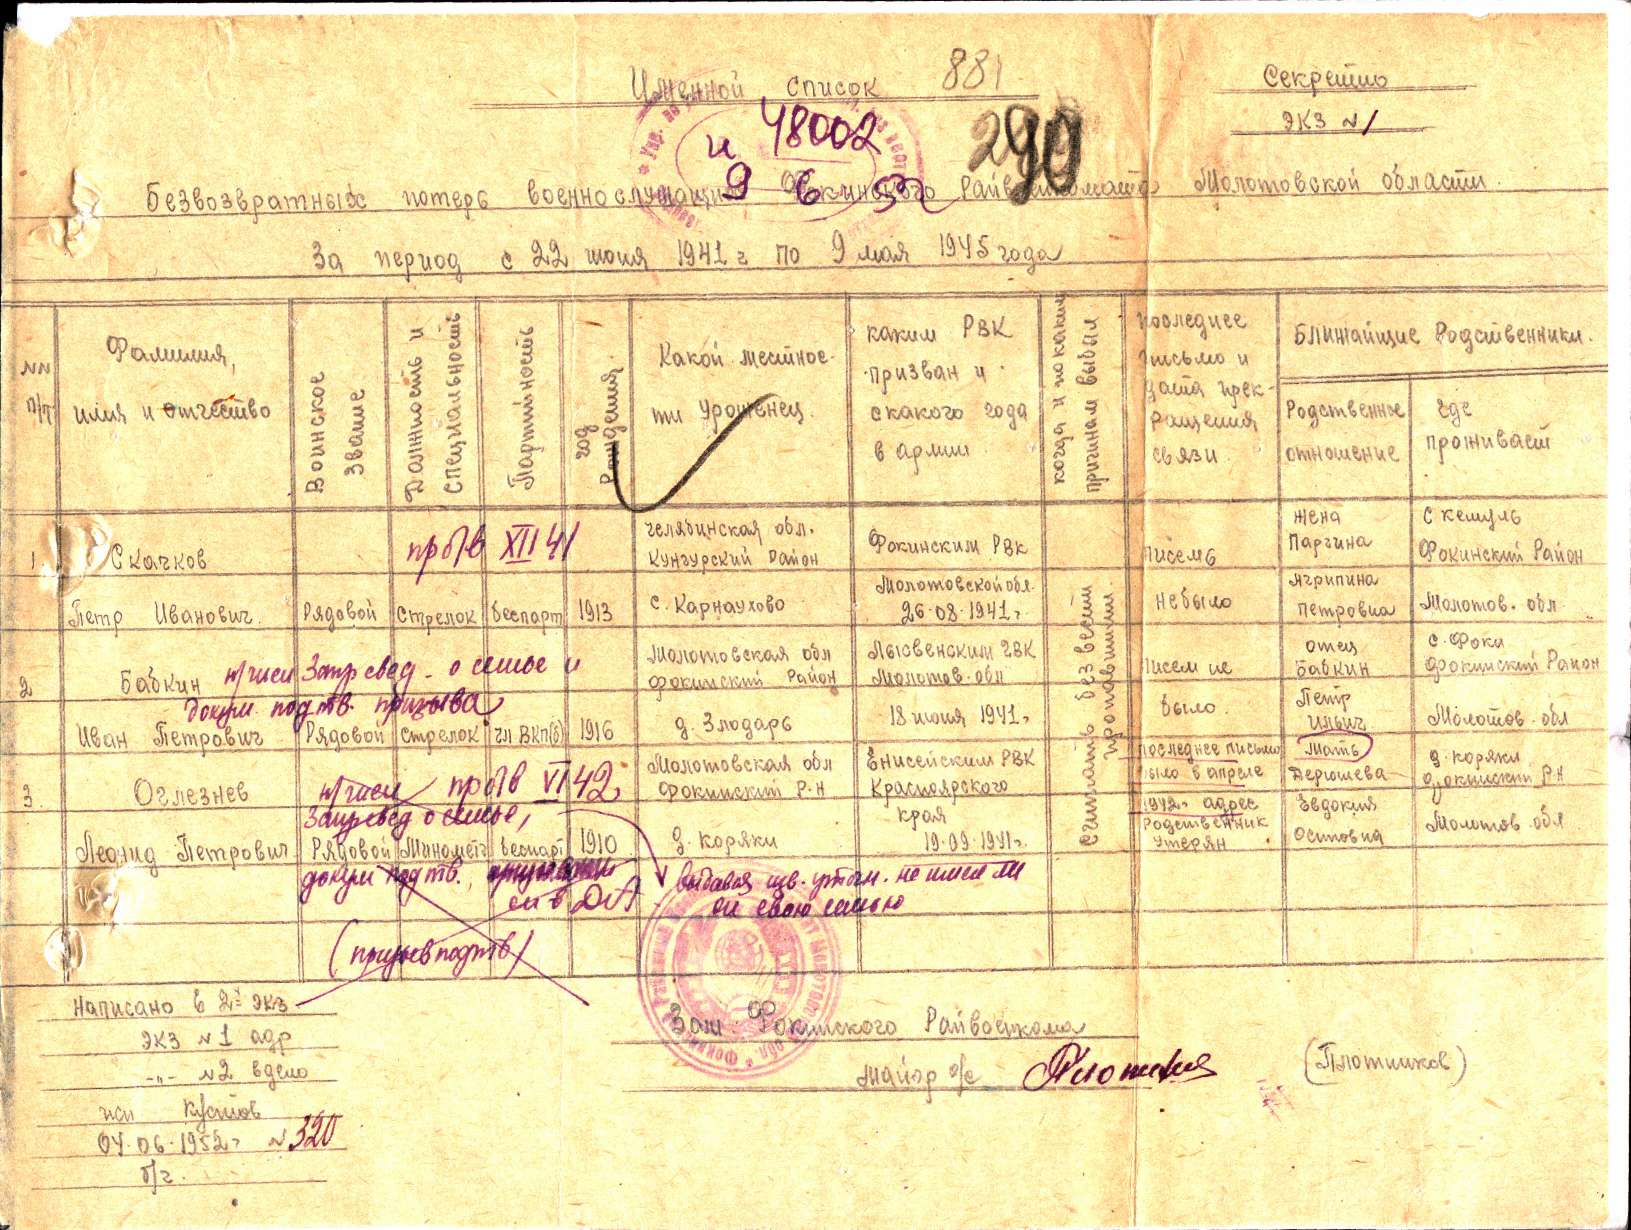 Именной список
881
Секретно
экз № 1
и 48002
290
9 6 52
Безвозвратных потерь военнослужащих Фокинского Райвоенкомата Молотовской области.
За период с 22 июня 1941 г по 9 мая 1945 года
№№ п/п
Фамилия, имя и отчество
Воинское звание
Должность и специальность
Партийность
год рождения
Какой местности урожен​ец.
каким РВК призван и с какого года в армии.
когда и по каким причинам выбыл
последнее письмо и дата прекращения связи.
Ближайщие Родственники.
Родственное отношение
где проживает
1
Скачков
Петр Иванович.
Рядовой
Стрелок
беспарт
1913
пр б/в XII 41
челябинская обл.
Кунгурский район
с. Карнаухово
Фокинским РВК
Молотовской обл.
26.08.1941г.
писем
не было
жена
Паргина
Агрипина
Петровна
с кемуль
Фокинский Район
Молотов. обл
2
Бабкин
Иван Петрович
Рядовой
Стрелок
чл ВКП(б)
1916
Запр свед. о семье и
докум. подтв. призыва
Молотовская обл
Фокинский Район
д. Злодарь
Лысвенским ГВК
Молотов. обл
18 июня 1941г.
писем не
было.
отец
Бабкин
Петр
Ильич
с. Фоки
Фокинский Район
Молотов. обл
3.
Оглезнев
Леонид Петрович
Рядовой
Миномётч
беспарт
1910
пр б/в VI 42
Запр свед о семье,
докум подтв.
(призыв подтв)
Молотовская обл
Фокинский Р-н
д. коряки
Енисейским РВК
Красноярского
края
19.09.1941г.
последнее письмо
было в апреле
1942г. адрес
Родственник
утерян
Мать
Дерюшева
Евдокия
Осиповна
д. коряки
Фокинский Р-н
Молотов. обл
Считать без вести пропавшими.
не имел ли
он свою семью
Написано в 2х экз
экз №1 адр
-"- №2 в дело
исп Кустов
04.06.1952г. № 320
б/ч.
Фокинского Райвоенкома
майор а/с
(Плотников)